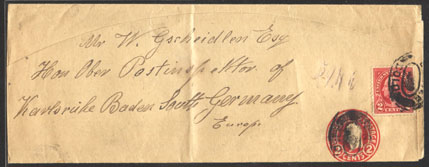 Mr W. Gscheidlen Esq
Hon Ober Postinspektor of
Karlsruhe Baden South Germany
Europe
2 CENTS 2